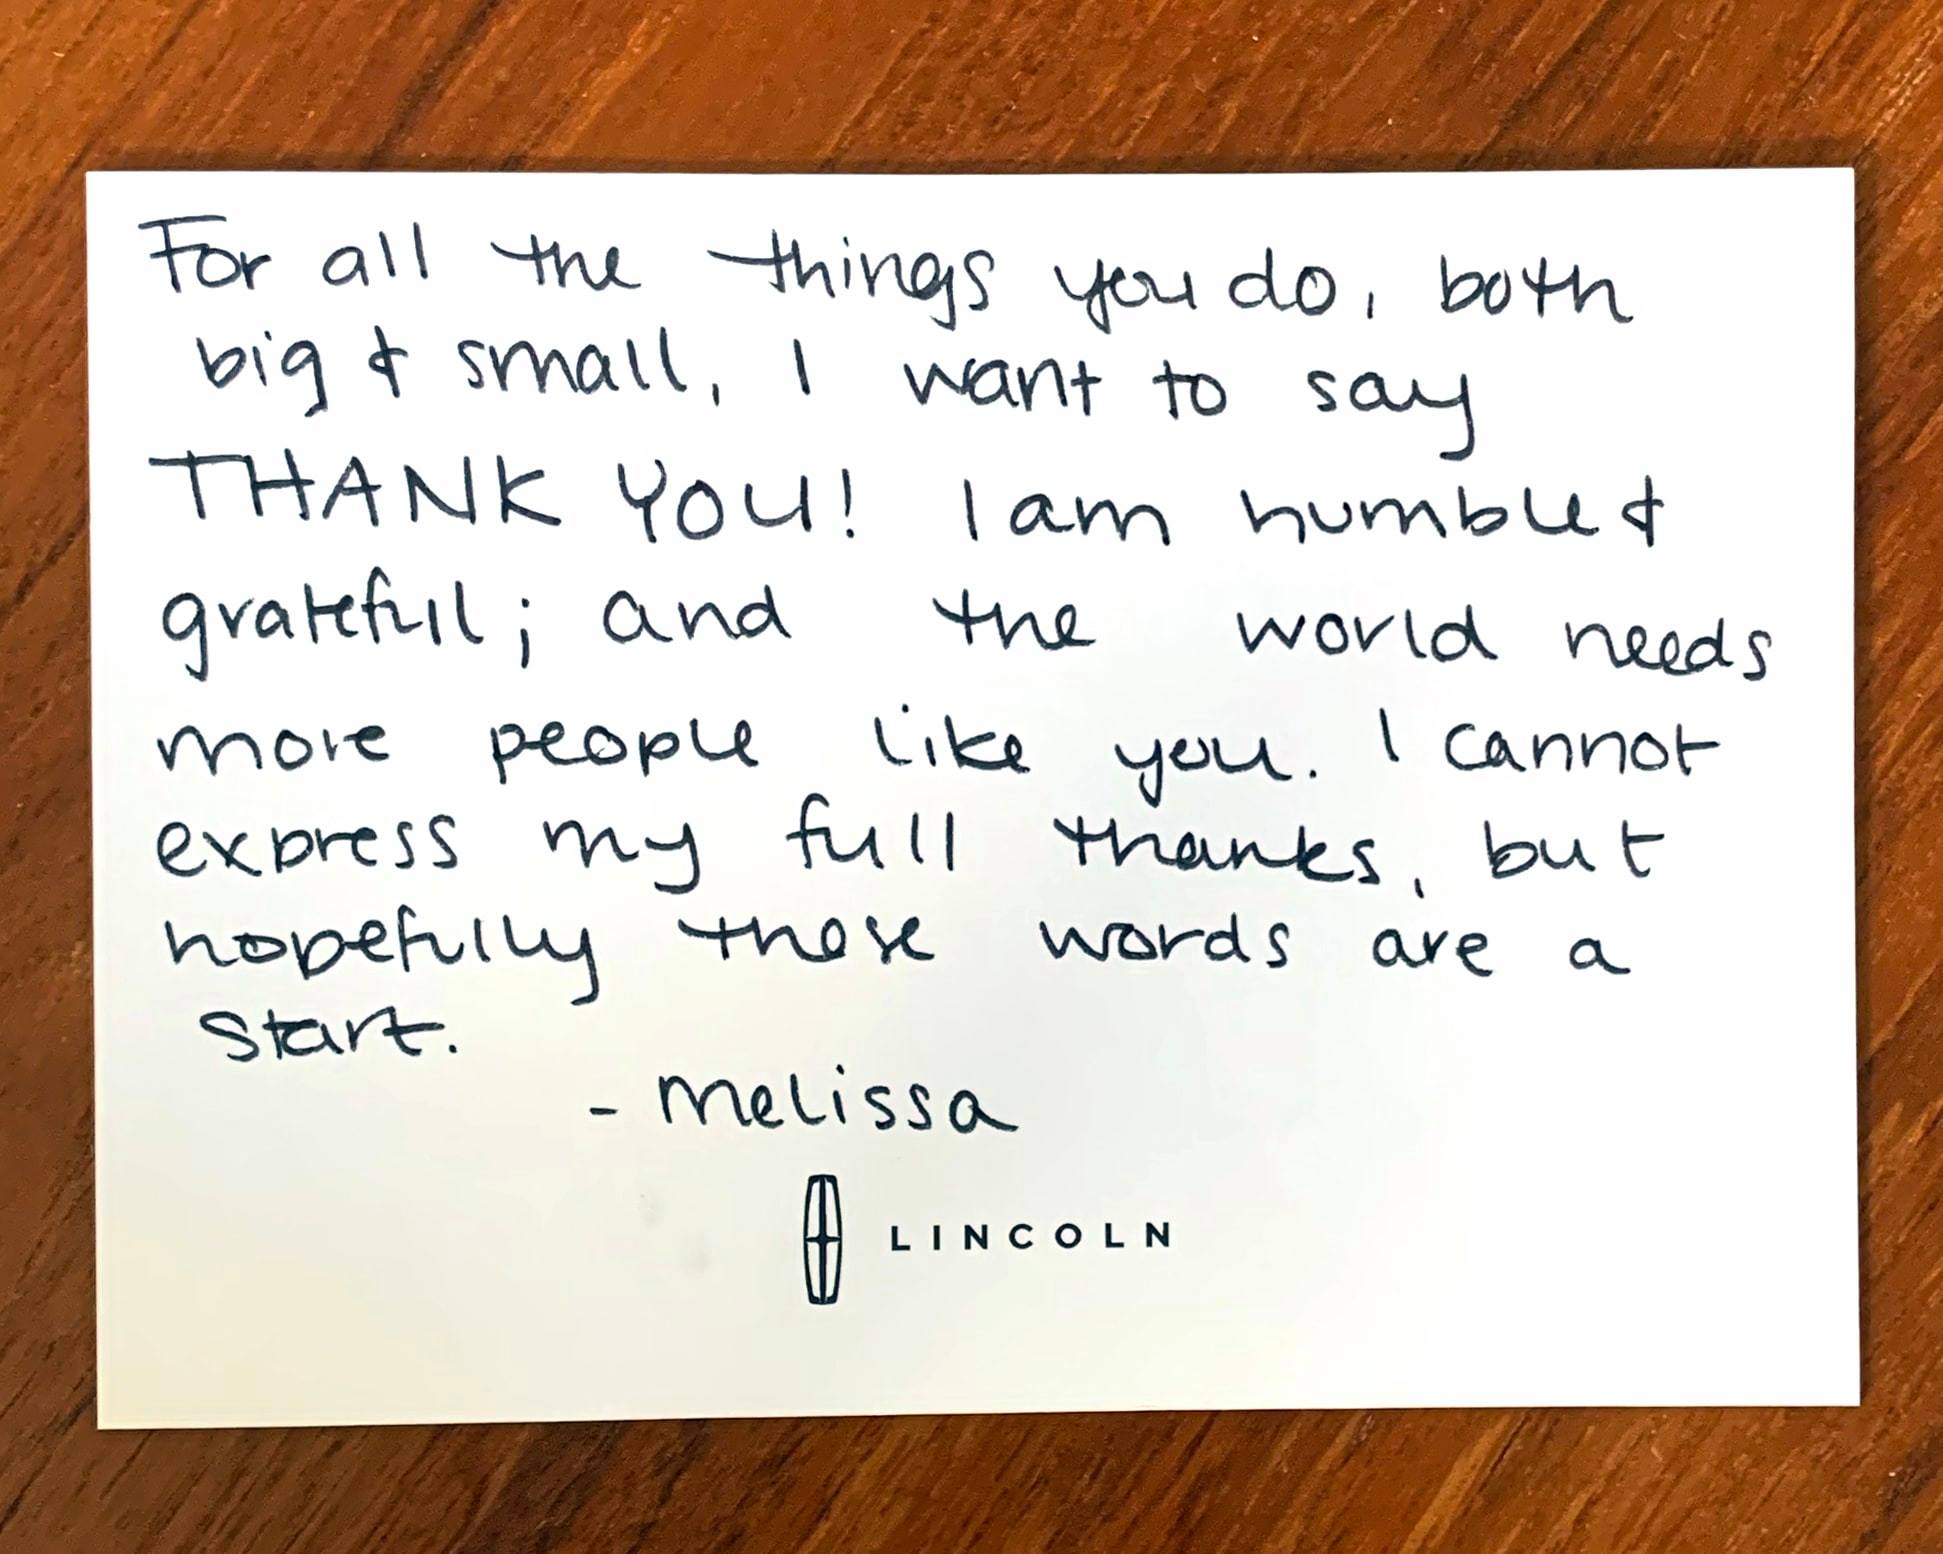 For all the things you do, both
big & small, I want to say
THANK YOU! I am humble &
grateful; and the world needs
more people like you. I cannot
express my full thanks, but
hopefully these words are a
start.
- Melissa
LINCOLN